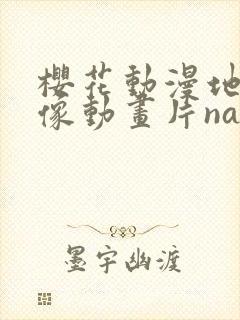 櫻花動漫地
像動畫片na
墨宇幽渡